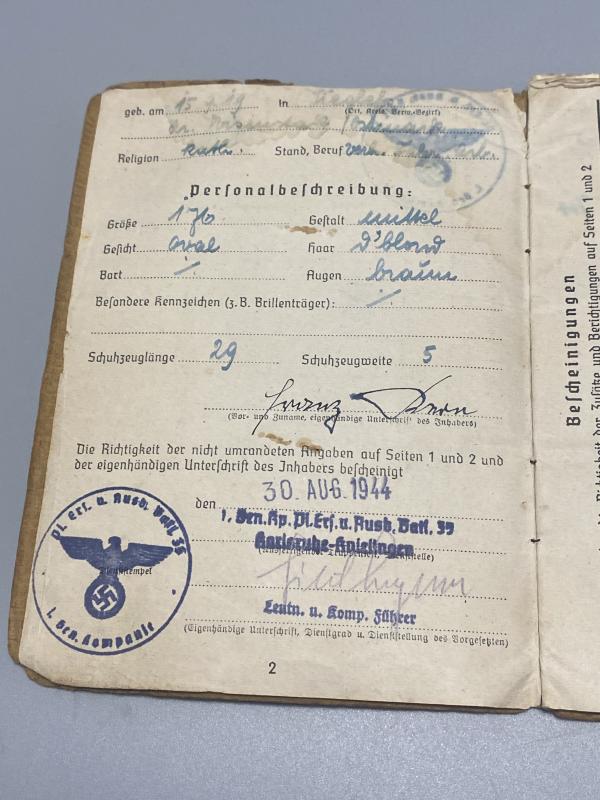 geb. am 15. 19 in
(Ort, Kreis, Verw.-Bezirk)
Religion kath. Stand, Beruf
Personalbeschreibung:
Größe 176 Gestalt mittel
Gesicht oval Haar d'blond
Bart ∕. Augen braun
Besondere Kennzeichen (z. B. Brillenträger): ∕.
Schuhzeuglänge 29 Schuhzeugweite 5
Franz Kern
(Vor- und Zuname, eigenhändige Unterschrift des Inhabers)
Die Richtigkeit der nicht umrandeten Angaben auf Seiten 1 und 2 und
der eigenhändigen Unterschrift des Inhabers bescheinigt
den 30. AUG. 1944
1. Gen. Kp. Pi. Ers. u. Ausb. Batl. 35
Karlsruhe-Knielingen
Pi. Ers. u. Ausb. Batl. 35
Dienststempel
1. Gen. Kompanie
Leutn. u. Komp. Führer
(Eigenhändige Unterschrift, Dienstgrad u. Dienststellung des Vorgesetzten)
2
Bescheinigungen
der Zusätze und Berichtigungen auf Seiten 1 und 2